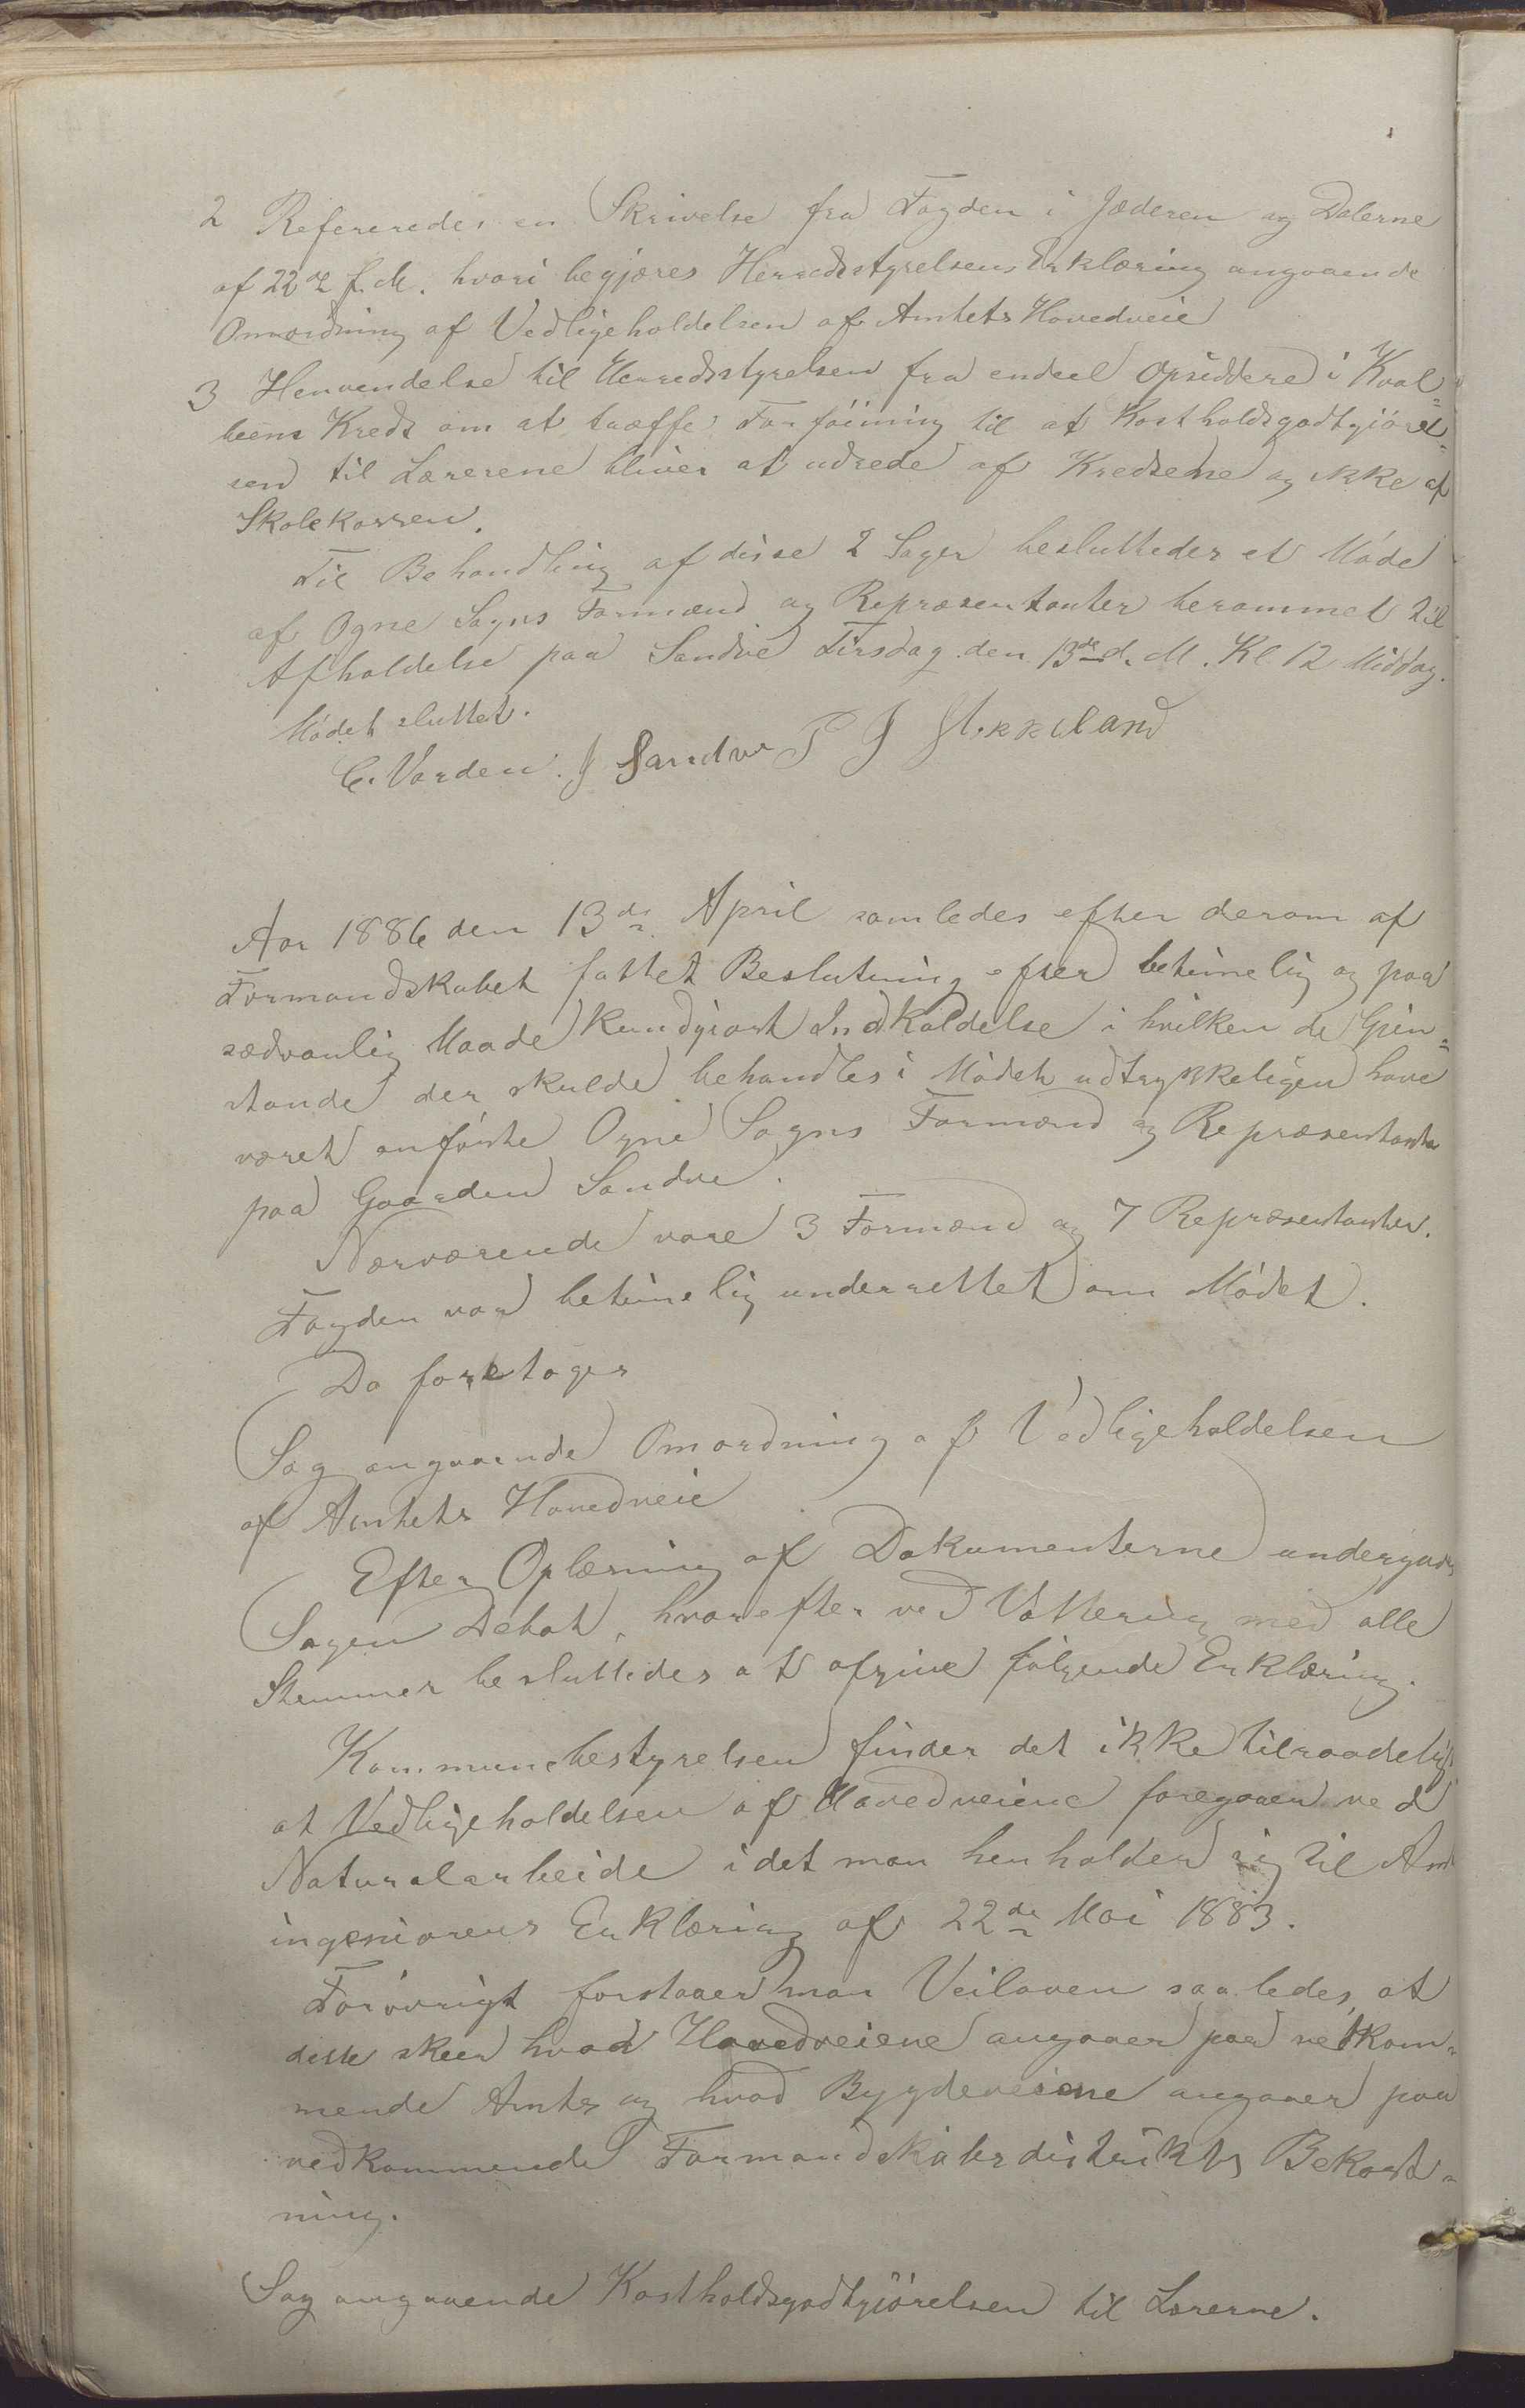 2 Refereredes en Skrivelse fra Fogden i Jæderen og Dalerne
af 22de f. M. hvori begjæres Herredsstyrelsens Erklæring angaaende
Omordning af Vedligeholdelsen af Amtets Hovedveie
3 Henvendelse til Herredsstyrelsen fra endeel Opsiddere i Kval-
beens Kreds om at træffe Forföining til at Kostholdsgodtgjörel-
sen til Lærerene bliver at udrede af Kredsene og ikke af
Skolekassen.
Til Behandling af disse 2 Sager besluttedes et Möde
af Ogne Sogns Formænd og Repræsentanter berammet til
Afholdelse paa Sandve Tirsdag den 13de d. M. Kl 12 Middag.
Mödet sluttet.
C. Varden. J Sandve P J
Aar 1886 den 13de April samledes efter derom af
Formandskabet fattet Beslutning efter betimelig og paa
sædvanlig Maade kundgjort Indkaldelse i hvilken de Gjen-
stande der skulde behandles i Mödet udtrykkeligen have
været anförte Ogne Sogns Formænd og Repræsentanter
paa Gaarden Sandve.
Nærværende vare 3 Formænd og 7 Repræsentanter.
Fogden var betimelig underrettet om Mödet.
Da foretoges
Sag angaaende Omordning af Vedligeholdelsen
af Amtets Hovedveie
Efter Oplæsning af Dokumenterne undergaves
Sagen Debat, hvorefter ved Vottering med alle
Stemmer besluttedes at afgive fölgende Erklæring.
Kommunebestyrelsen finder det ikke tilraadeligt
at Vedligeholdelsen af Hovedveiene foregaaer ved
Naturalarbeide idet man henholder sig til Amts
ingeniorens Erklæring af 22de Mai 1883.
Forövrigt forstaaer man Veiloven saaledes, at
dette skeer hvad Hovedveiene angaaer paa vedkom-
mende Amts og hvad Bygdeveiene angaaer paa
vedkommende Formandskabsdistrikts Bekost-
ning.
Sag angaaende Kostholdsgodtgjörelsen til Lærerne.